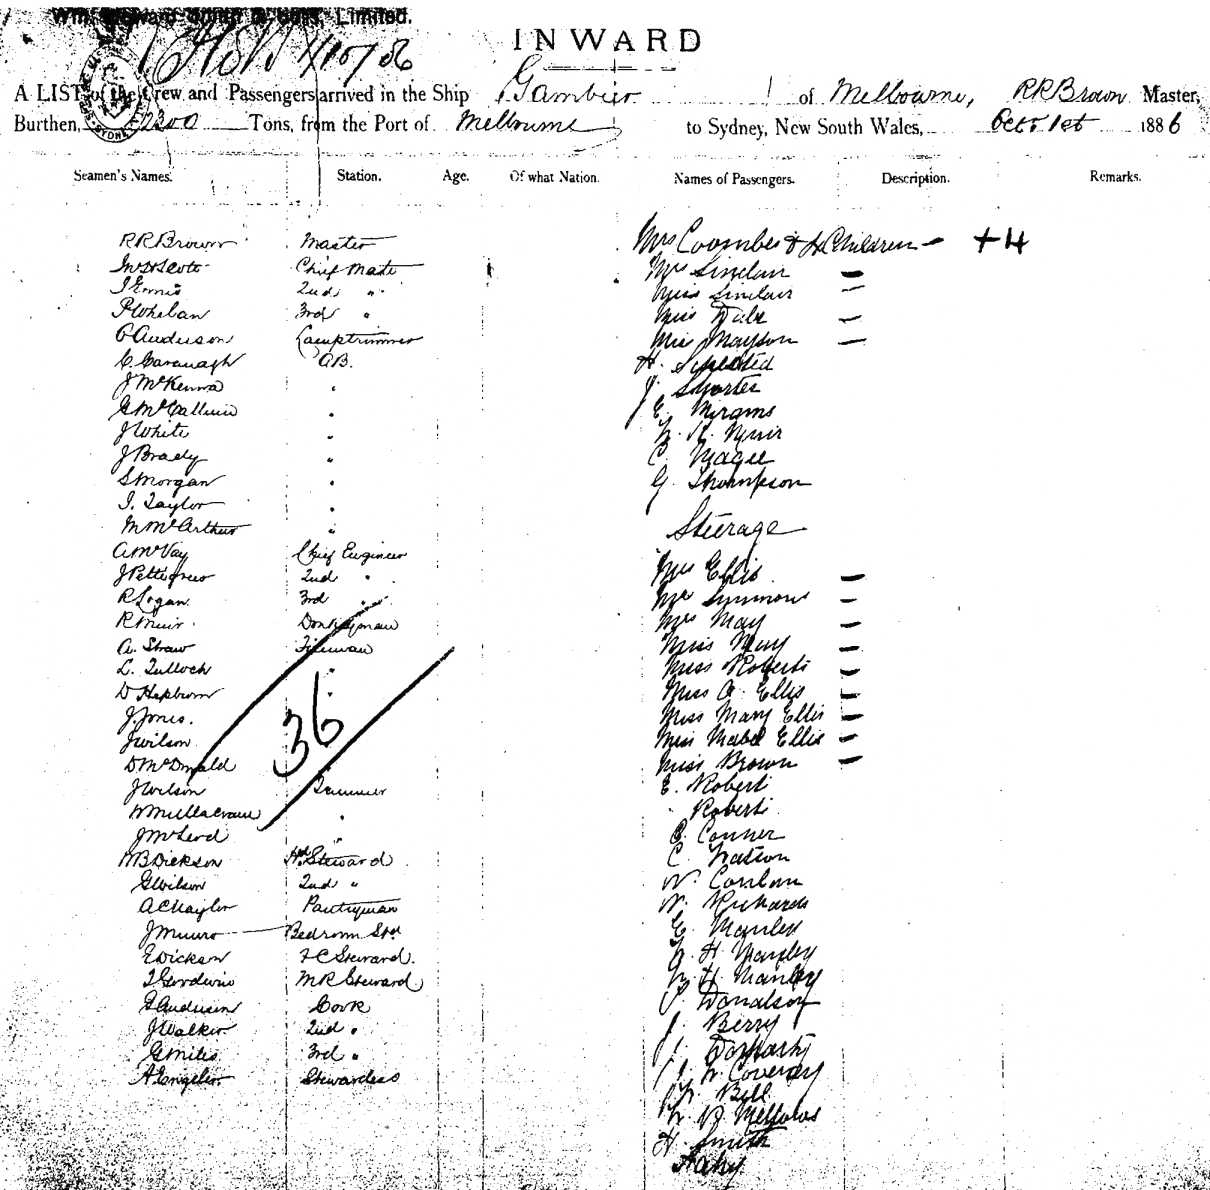 Wm. Howard Smith & Sons, Limited.
1/10/86
INWARD
A LIST of the Crew and Passengers arrived in the Ship Gambier of Melbourne, RR Brown Master,
Burthen, 2300 Tons, from the Port of Melbourne to Sydney, New South Wales, Oct 1st 1886
Seamen's Names. Station. Age. Of what Nation. Names of Passengers. Description. Remarks.
RR Brown Master
Chief Mate
J Ennis 2nd "
P Whelan 3rd "
C Anderson Lamptrimmer
C. Cavanagh AB.
J McKenna "
G McCallum "
J White "
J Brady "
S Morgan "
J. Taylor "
M McArthur "
A McVay Chief Engineer
J Pettigrew 2nd "
R Logan 3rd "
R Muir Donkeyman
A. Shaw Fireman
L. Tulloch "
D Hepburn "
J Jones.
J Wilson
D McDonald
J Wilson Trimmer
"
J McLeod "
WB Dickson Hd. Steward
G Wilson 2nd "
AC Naylor Pantryman
J Munro Bedroom Std
E Dickson FC Steward.
J Goodwin MR Steward
Anderson Cook
J Walker 2nd "
G Miles 3rd "
A Engelor Stewardess
36
Mrs Coombes & 4 Children – +4
Mrs Sinclair –
Miss Sinclair –
Miss Dale –
Miss Mayson –
H.
J. Shorter
E. Mirams
Muir
C. Magee
G. Thompson
Steerage
Mrs Ellis –
Mrs Simmons –
Mrs May –
Miss May –
Miss Roberts –
Miss A. Ellis –
Miss Mary Ellis –
Miss Mabel Ellis –
Miss Brown –
E. Robert
Roberts
C. Conner
C. Watson
W. Conlan
W. Richards
E. Manley
H. Manley
H Manley
J Donaldson
J. Berry
J.
W. Coveny
Bell
Mellows
H. Smith
Fahy